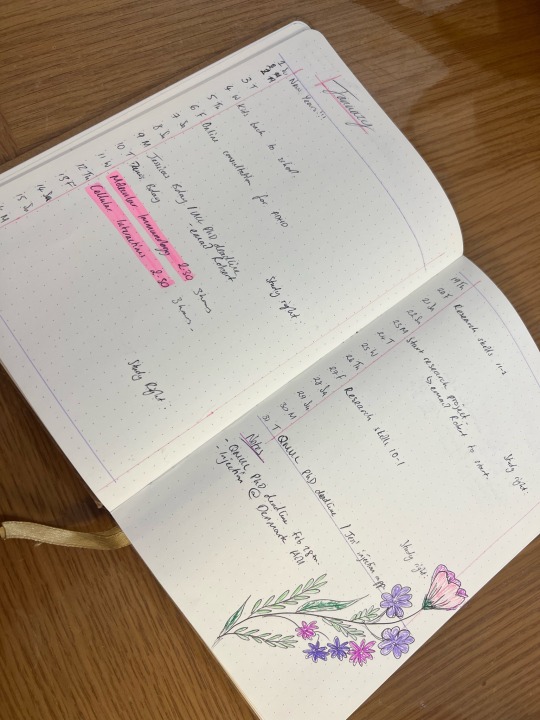 January
1 Su New Years!!!
2 M
3 T
4 W Kids back to school
5 Th
6 F Online consultation for
7 Sa
8 Su
9 M Jessicas Bday / UCL PhD deadline
- email Robert
10 T Bday
11 W Molecular Immunology 2:30 3 hours
12 Th Cellular Interactions 2:30 3 hours.
13 F
14 Sa
15 Su
M
Study right.
Study Right.
19 Th Research skills 11-2
20 F
21 Sa
22 Su
23 M Start research project
to email Robert to start.
24 T
25 W
26 Th Research skills 10-1
27 F
28 Sa
29 Su
30 M
31 T QMUL PhD deadline / injection app
Study right
Study right
Notes
- QMUL PhD deadline Feb 28th
- Injection @ Denmark Hill